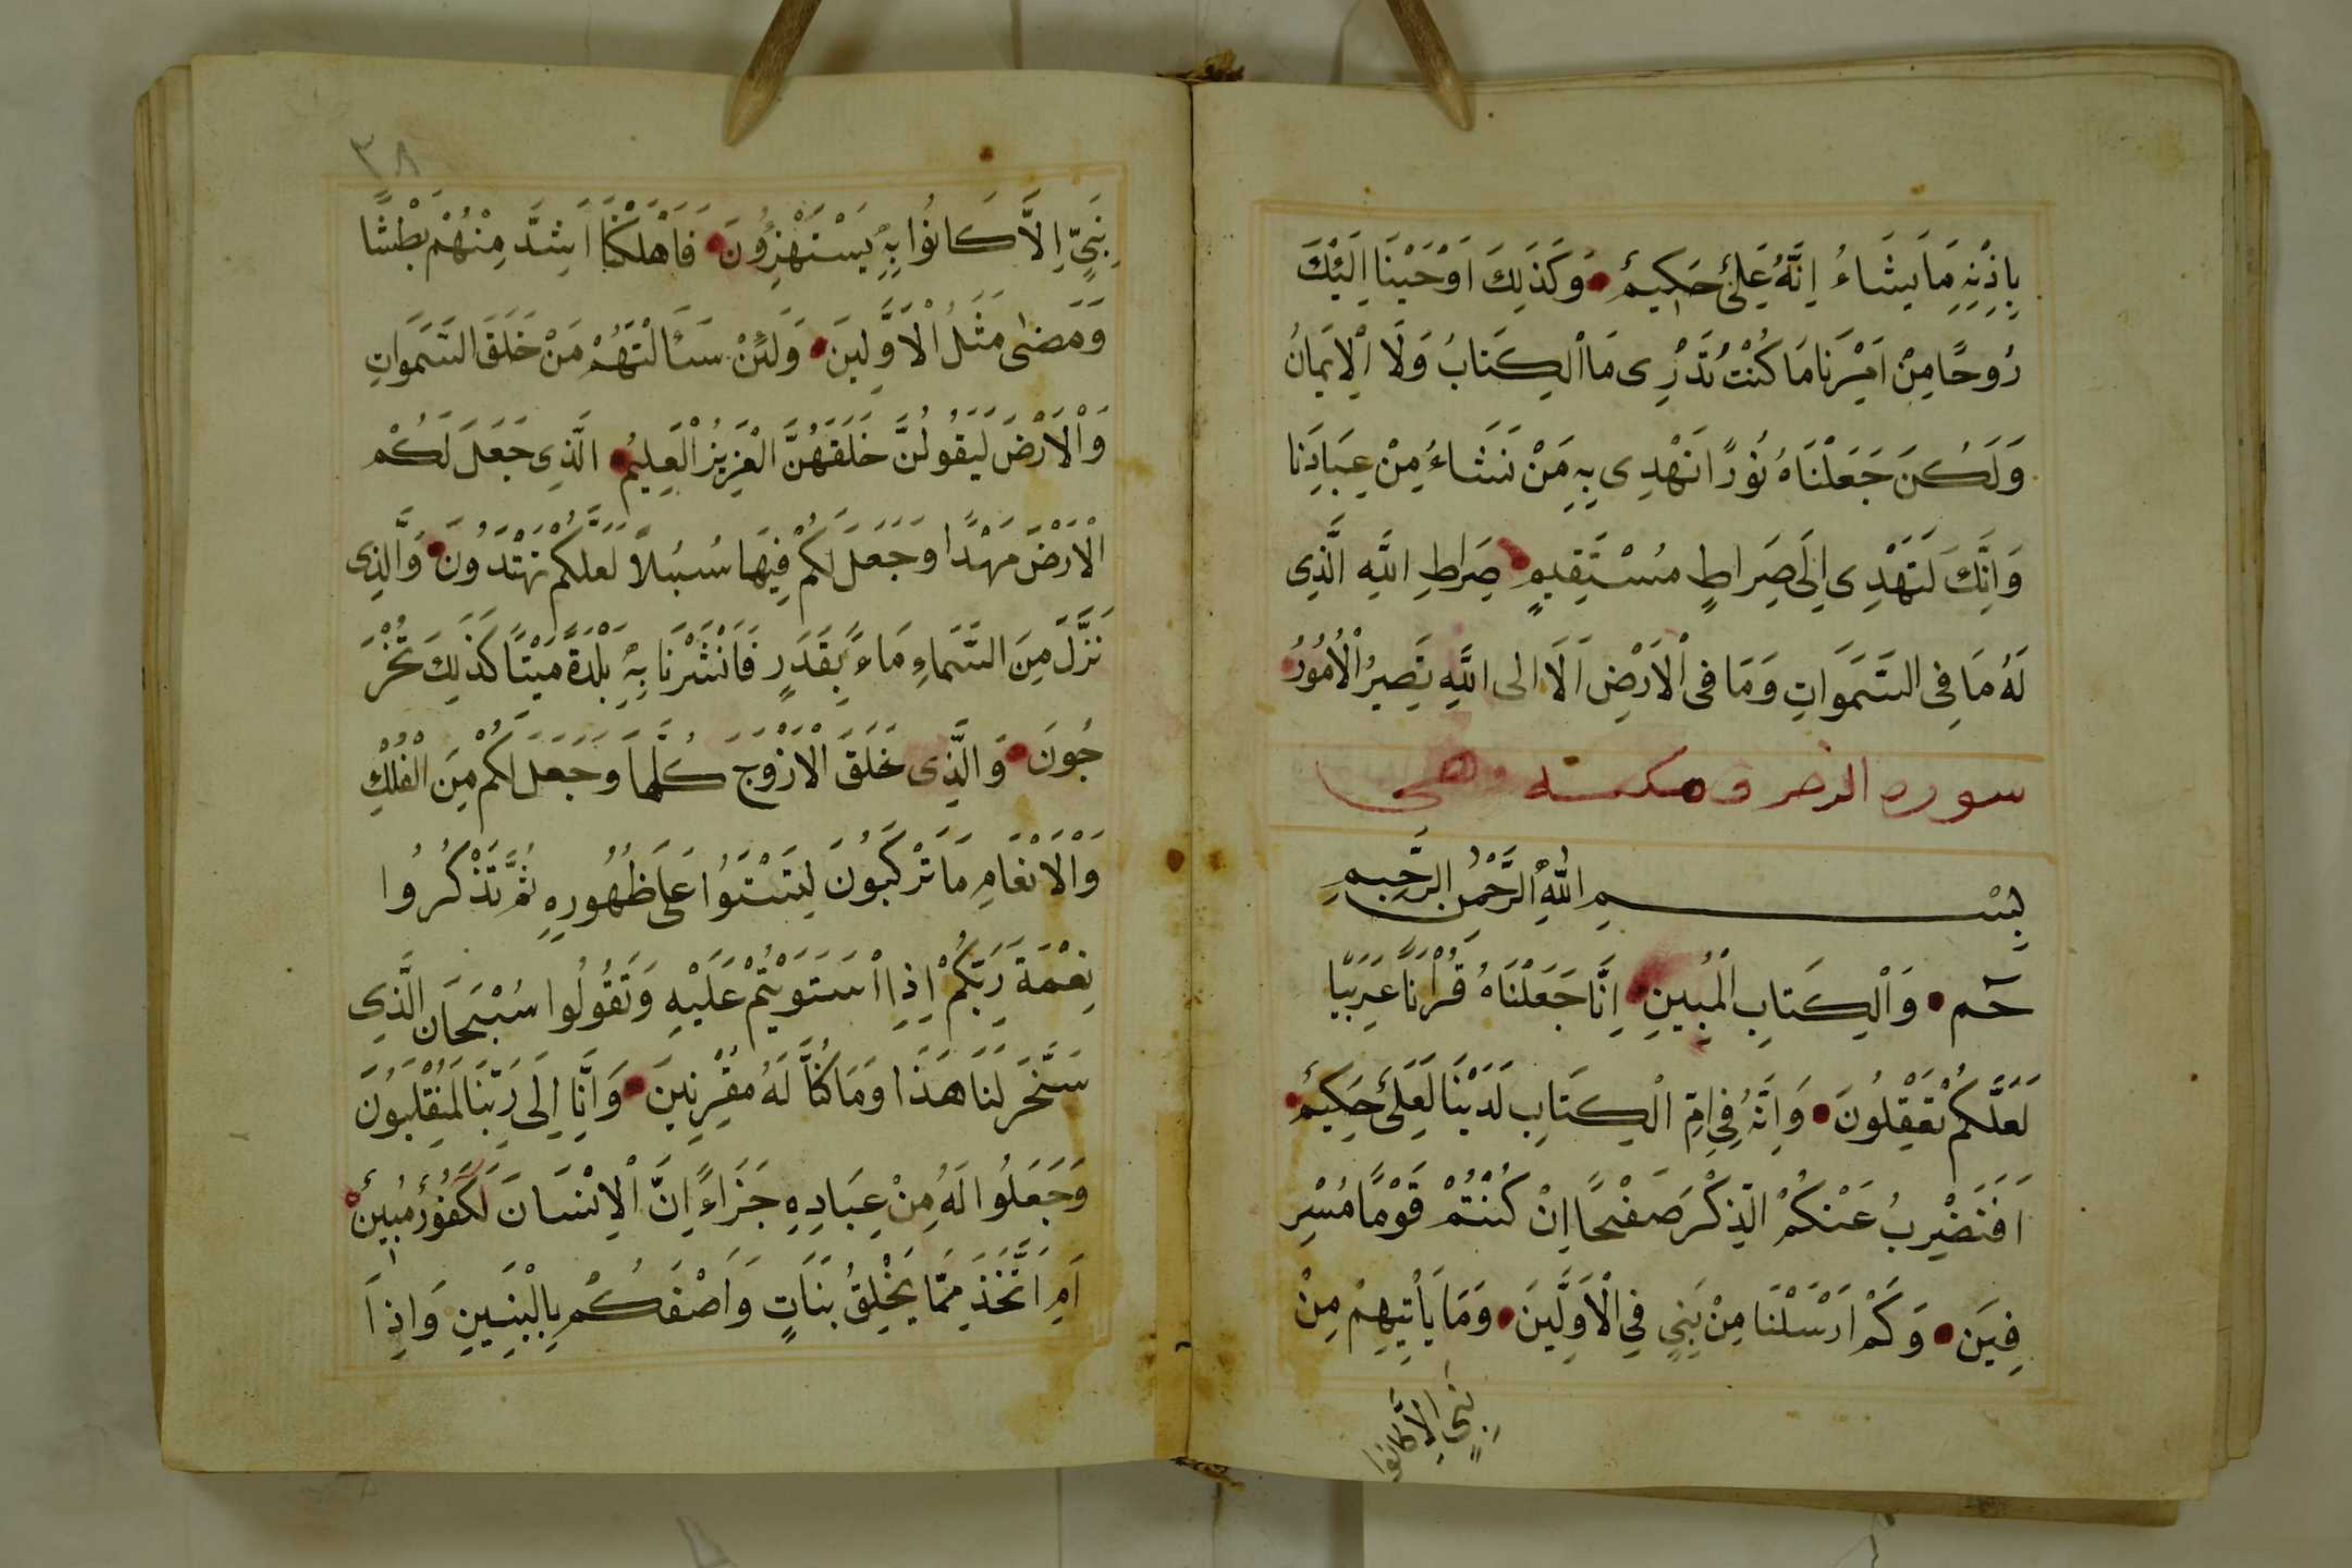 بِاِذْنِهِ مَا يَشَاءُ اِنَّهُ عَلِىٌّ حَكِيمٌ وَكَذَلِكَ اَوْحَيْنَا اِلَيْكَ
رُوحًا مِنْ اَمْرِنَا مَا كُنْتَ تَدْرِى مَا الْكِتَابُ وَلَا الْاِيمَانُ
وَلَكِنْ جَعَلْنَاهُ نُورًا نَهْدِى بِهِ مَنْ نَشَاءُ مِنْ عِبَادِنَا
وَاِنَّكَ لَتَهْدِى اِلَى صِرَاطٍ مُسْتَقِيمٍ صِرَاطِ اللَّهِ الَّذِى
لَهُ مَا فِى السَّمَوَاتِ وَمَا فِى الْاَرْضِ اَلَا اِلى اللَّهِ تَصِيرُ الْاُمُورُ
سوره الزخر ف مكيه وهى
بِسْمِ اللَّهِ الرَّحْمَنِ الرَّحِيمِ
حٓم وَالْكِتَابِ الْمُبِينِ اِنَّا جَعَلْنَاهُ قُرْاٰنًا عَرَبِيًّا
لَعَلَّكُمْ تَعْقِلُونَ وَاِنَّهُ فِى اُمِّ الْكِتَابِ لَدَيْنَا لَعَلِىٌّ حَكِيمٌ
اَفَنَضْرِبُ عَنْكُمُ الذِّكْرَ صَفْحًا اِنْ كُنْتُمْ قَوْمًا مُسْرِ
فِينَ وَكَمْ اَرْسَلْنَا مِنْ نَبِىٍّ فِى الْاَوَّلِينَ وَمَا يَأْتِيهِمْ مِنْ
نَبِىٍّ اِلَّا كانوا
٣٨
نَبِىٍّ اِلَّا كَانُوا بِهِ يَسْتَهْزِؤُنَ فَاَهْلَكْنَا اَشَدَّ مِنْهُمْ بَطْشًا
وَمَضٰى مَثَلُ الْاَوَّلِينَ وَلَئِنْ سَئَالْتَهُمْ مَنْ خَلَقَ السَّمَوَاتِ
وَالْاَرْضَ لَيَقُولُنَّ خَلَقَهُنَّ الْعَزِيزُ الْعَلِيمُ الَّذِى جَعَلَ لَكُمْ
الْاَرْضَ مَهْدًا وَجَعَلَ لَكُمْ فِيهَا سُبُلاً لَعَلَّكُمْ تَهْتَدُونَ وَالَّذِى
نَزَّلَ مِنَ السَّمَاءِ مَاءً بِقَدَرٍ فَاَنْشَرْنَا بِهِ بَلْدَةً مَيْتًا كَذَلِكَ تُخْرَ
جُونَ وَالَّذِى خَلَقَ الْاَزْوَجَ كُلَّهَا وَجَعَلَ لَكُمْ مِنَ الْفُلْكِ
وَالْاَنْعَامِ مَا تَرْكَبُونَ لِتَسْتَوُا عَلَى ظُهُورِهِ ثُمَّ تَذْكُرُوا
نِعْمَةَ رَبِّكُمْ اِذَا اسْتَوَيْتُمْ عَلَيْهِ وَتَقُولُوا سُبْحَانَ الَّذِى
سَخَّرَ لَنَا هَذَا وَمَا كُنَّا لَهُ مُقْرِنِينَ وَاِنَّا اِلَى رَبِّنَا لَمُنْقَلِبُونَ
وَجَعَلُوا لَهُ مِنْ عِبَادِهِ جَزَاءً اِنَّ الْاِنْسَانَ لَكَفُورٌ مُبِينٌ
اَمِ اتَّخَذَ مِمَّا يَخْلُقُ بَنَاتٍ وَاَصْفَكُمْ بِالْبَنِينَ وَاِذَا